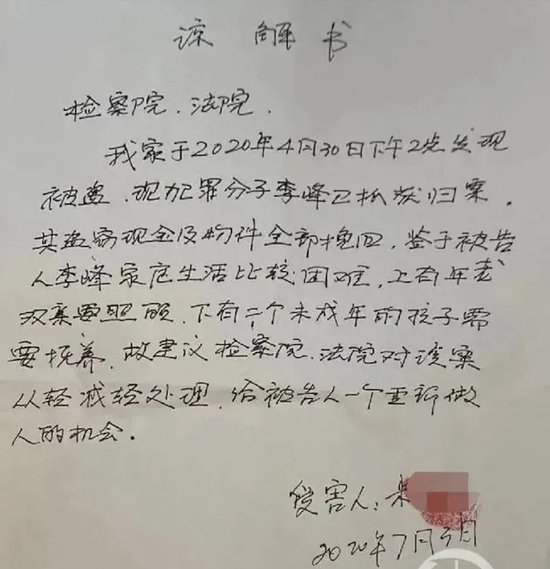 谅解书
检察院、法院、
我家于2020年4月30日下午2点发现
被盗,现犯罪分子李峰已抓获归案。
其盗窃现金及物件全部挽回,鉴于被告
人李峰家庭生活比较困难,上有年老
双亲要照顾、下有二个未成年的孩子需
要抚养,故建议检察院、法院对该案
从轻减轻处理,给被告人一个重新做
人的机会。
受害人:
2020年7月3日